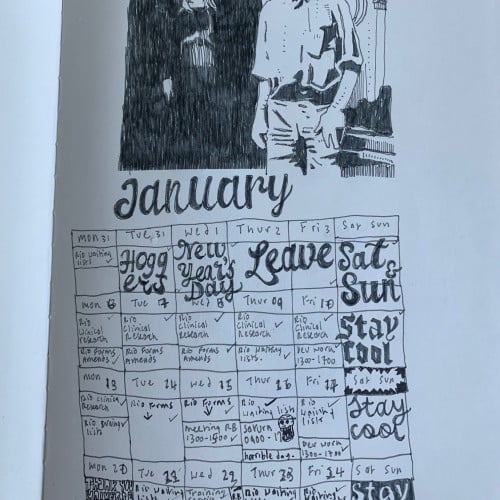 January
Mon 31 Tue 31 Wed 1 Thur 2 Fri 3 Sat Sun
Rio waiting lists
Hogg
ers
New
Year's
Day
Leave
Sat
&
Sun
Mon 6 Tue 7 Wed 8 Thur 09 Fri 10
Rio Clinical Research
Rio Clinical Research
Rio Clinical Research
Rio Clinical Research
Rio Clinical Research
Stay
cool
Rio Forms Amends
Rio Forms Amends
Rio Forms Amends
Rio Waiting lists.
Dev work 1300-1700
Mon 13 Tue 14 Wed 15 Thur 16 Fri 17 Sat Sun
Rio Clinical Research
Rio Forms
Rio Forms
Rio Waiting lists
Rio Waiting lists
Stay
cool
lists
meeting RB
1300-1500
horrible day.
Dev work
1300-1700
Mon 20 Tue 21 Wed 22 Thur 23 Fri 24 Sat Sun
Rio Waiting
Training
Rio Waiting
Stay